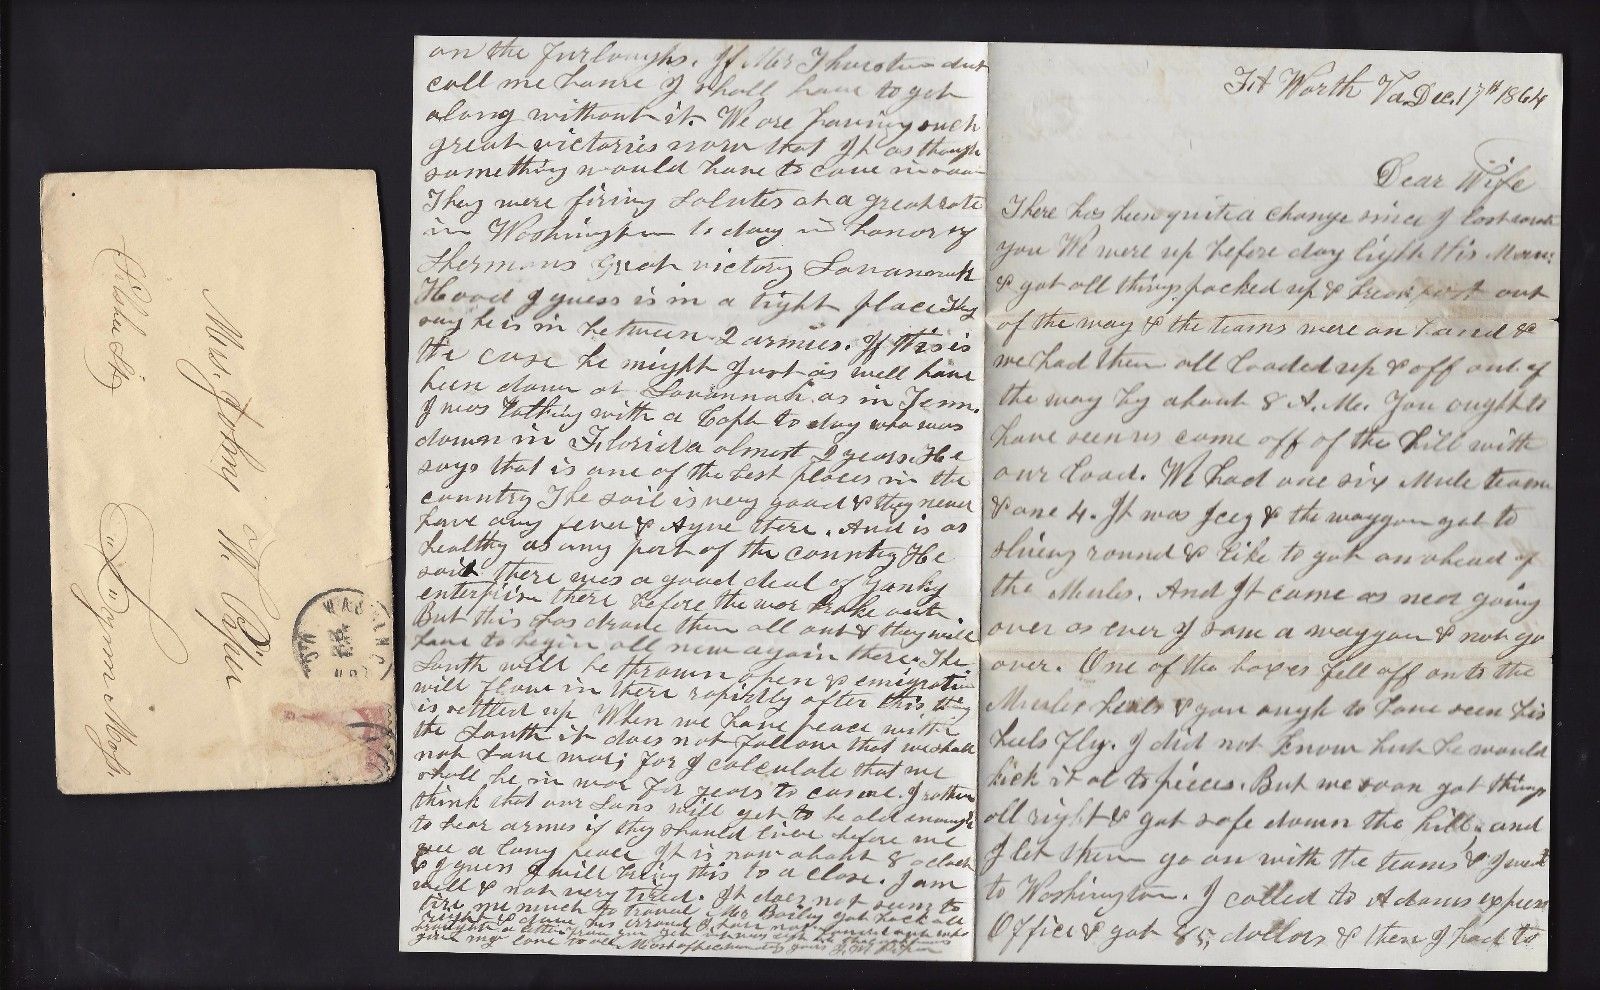 Ft Worth Va. Dec. 17th 1864
Dear Wife
There has been quite a change since I last wrote
you We were up before day light this Morn:
& got all things packed up & breakfast out
of the way & the teams were on hand &c
we had them all loaded up & off out of
the way by about 8 A.M. You ought to
have seen us come off of the hill with
our load. We had one six Mule team
& one 4. It was Icey & the waggon got to
sliueing round & like to got on ahead of
the Mules. And It came as near going
over as ever I saw a waggon & not go
over. One of the boxes fell off onto the
Mules heels & you ough to have seen his
heels fly. I did not know but he would
kick it al to pieces. But we soon got things
all right & got safe down the hill, and
I let them go on with the teams & I went
to Washington. I called to Adams express
Office & got 85, dollars & then I had to
on the furloughs. If Mr Thurston dont
call me home I shall have to get
along without it. We are having such
great victories now that It as though
something would have to cave in
They were fireing Salutes at a great rate
in Washington to day in honor of
Shermans great victory Savanawh
Hood I guess is in a tight place They
say he is in between 2 armies. If this is
the case he might Just as well have
been down at Savannah as in Tenn.
I was talking with a Capt to day who was
down in Florida almost 2 years. He
says that is one of the best places in the
country The soil is very good & they never
have any fever & Ague there. And is as
healthy as any part of the country He
said there was a good deal of Yanky
enterprise there before the war broke out.
But this has drove them all out & they will
have to begin all new again there. The
South will be thrown open & emigration
will flow in there rapidly after this thing
is settled up. When we have peace with
the South it does not follow that we shall
not have war, for I calculate that we
shall be in war for years to come. I rather
think that our Sons will get to be old enough
to bear armes if they should live before we
see a long peace It is now about 8 oclock
& I guess I will bring this to a close. I am
well & not very tired. It does not seem to
tire me much to travel Mr Bailey got back all
right & done his errand I have not
give my love to all Most affectionately yours
Mrs. Johny M Pepper
Silsbee St,
"Lynn" Mass.
WASHINGTON